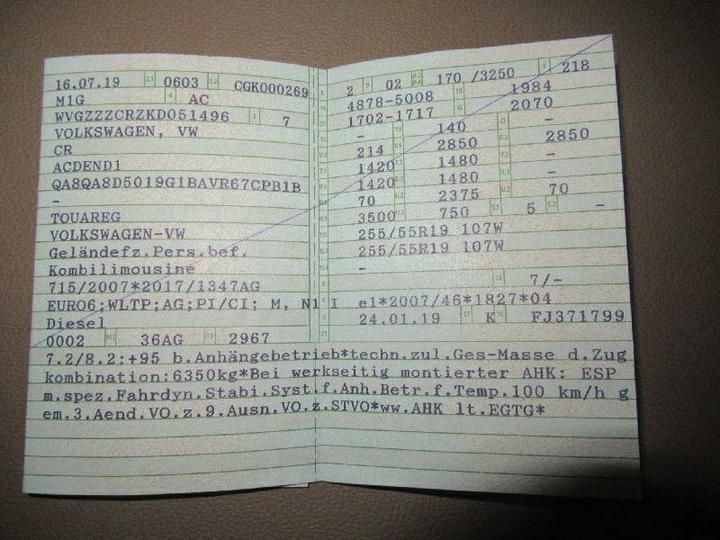 16.07.19 0603 CGK000269
M1G AC
WVGZZZCRZKD051496 7
VOLKSWAGEN, VW
CR
ACDEND1
QA8QA8D5019G1BAVR67CPB1B
-
TOUAREG
VOLKSWAGEN-VW
Geländefz.Pers.bef.
Kombilimousine
715/2007*2017/1347AG
EURO6;WLTP;AG;PI/CI; M, N1 I
Diesel
0002 36AG 2967
2 02 170 /3250 218
4878-5008 1984
1702-1717 2070
- 140 -
214 2850 2850
1420 1480 -
1420 1480 -
70 2375 70
3500 750 5 -
255/55R19 107W
255/55R19 107W
-
7/-
e1*2007/46*1827*04
24.01.19 K FJ371799
7.2/8.2:+95 b.Anhängebetrieb*techn.zul.Ges-Masse d.Zug
kombination:6350kg*Bei werkseitig montierter AHK: ESP
m.spez.Fahrdyn.Stabi.Syst.f.Anh.Betr.f.Temp.100 km/h g
em.3.Aend.VO.z.9.Ausn.VO.z.STVO*ww.AHK lt.EGTG*